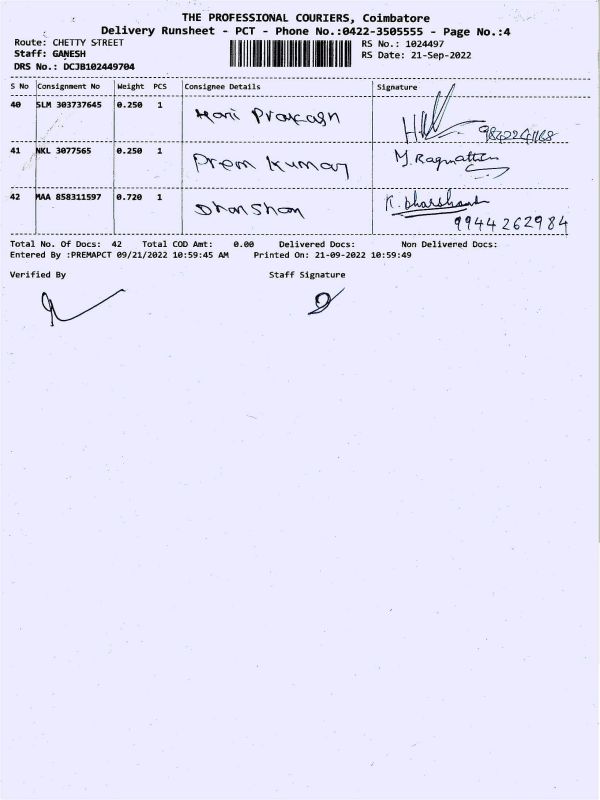 THE PROFESSIONAL COURIERS, Coimbatore
Delivery Runsheet - PCT - Phone No.:0422-3505555 - Page No.:4
Route: CHETTY STREET
RS No.: 1024497
Staff: GANESH
RS Date: 21-Sep-2022
DRS No.: DCJB102449704
S No Consignment No Weight PCS Consignee Details Signature
40 SLM 303737645 0.250 1 Hari Prakash
41 NKL 3077565 0.250 1 Prem Kumar M. Ragnathan
42 MAA 858311597 0.720 1 Dharshan K. Dharshan
9944262984
Total No. Of Docs: 42 Total COD Amt: 0.00 Delivered Docs: Non Delivered Docs:
Entered By :PREMAPCT 09/21/2022 10:59:45 AM Printed On: 21-09-2022 10:59:49
Verified By Staff Signature